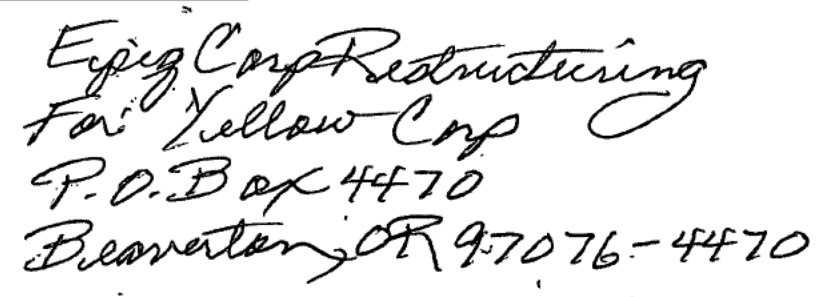 Epiq Corp Restructuring
For Yellow Corp
P.O. Box 4470
Beaverton, OR 97076-4470